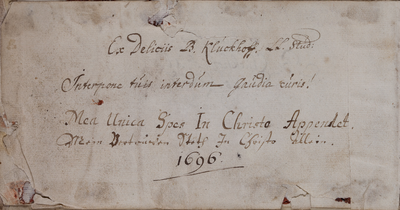 Ex Deliciis B. Kluckhoff. LL. Stud:
Interpone tuis interdum gaudia curis!
Mea Unica Spes In Christo Appendet.
Mein Vertrauen Stets In Christo allein.
1696